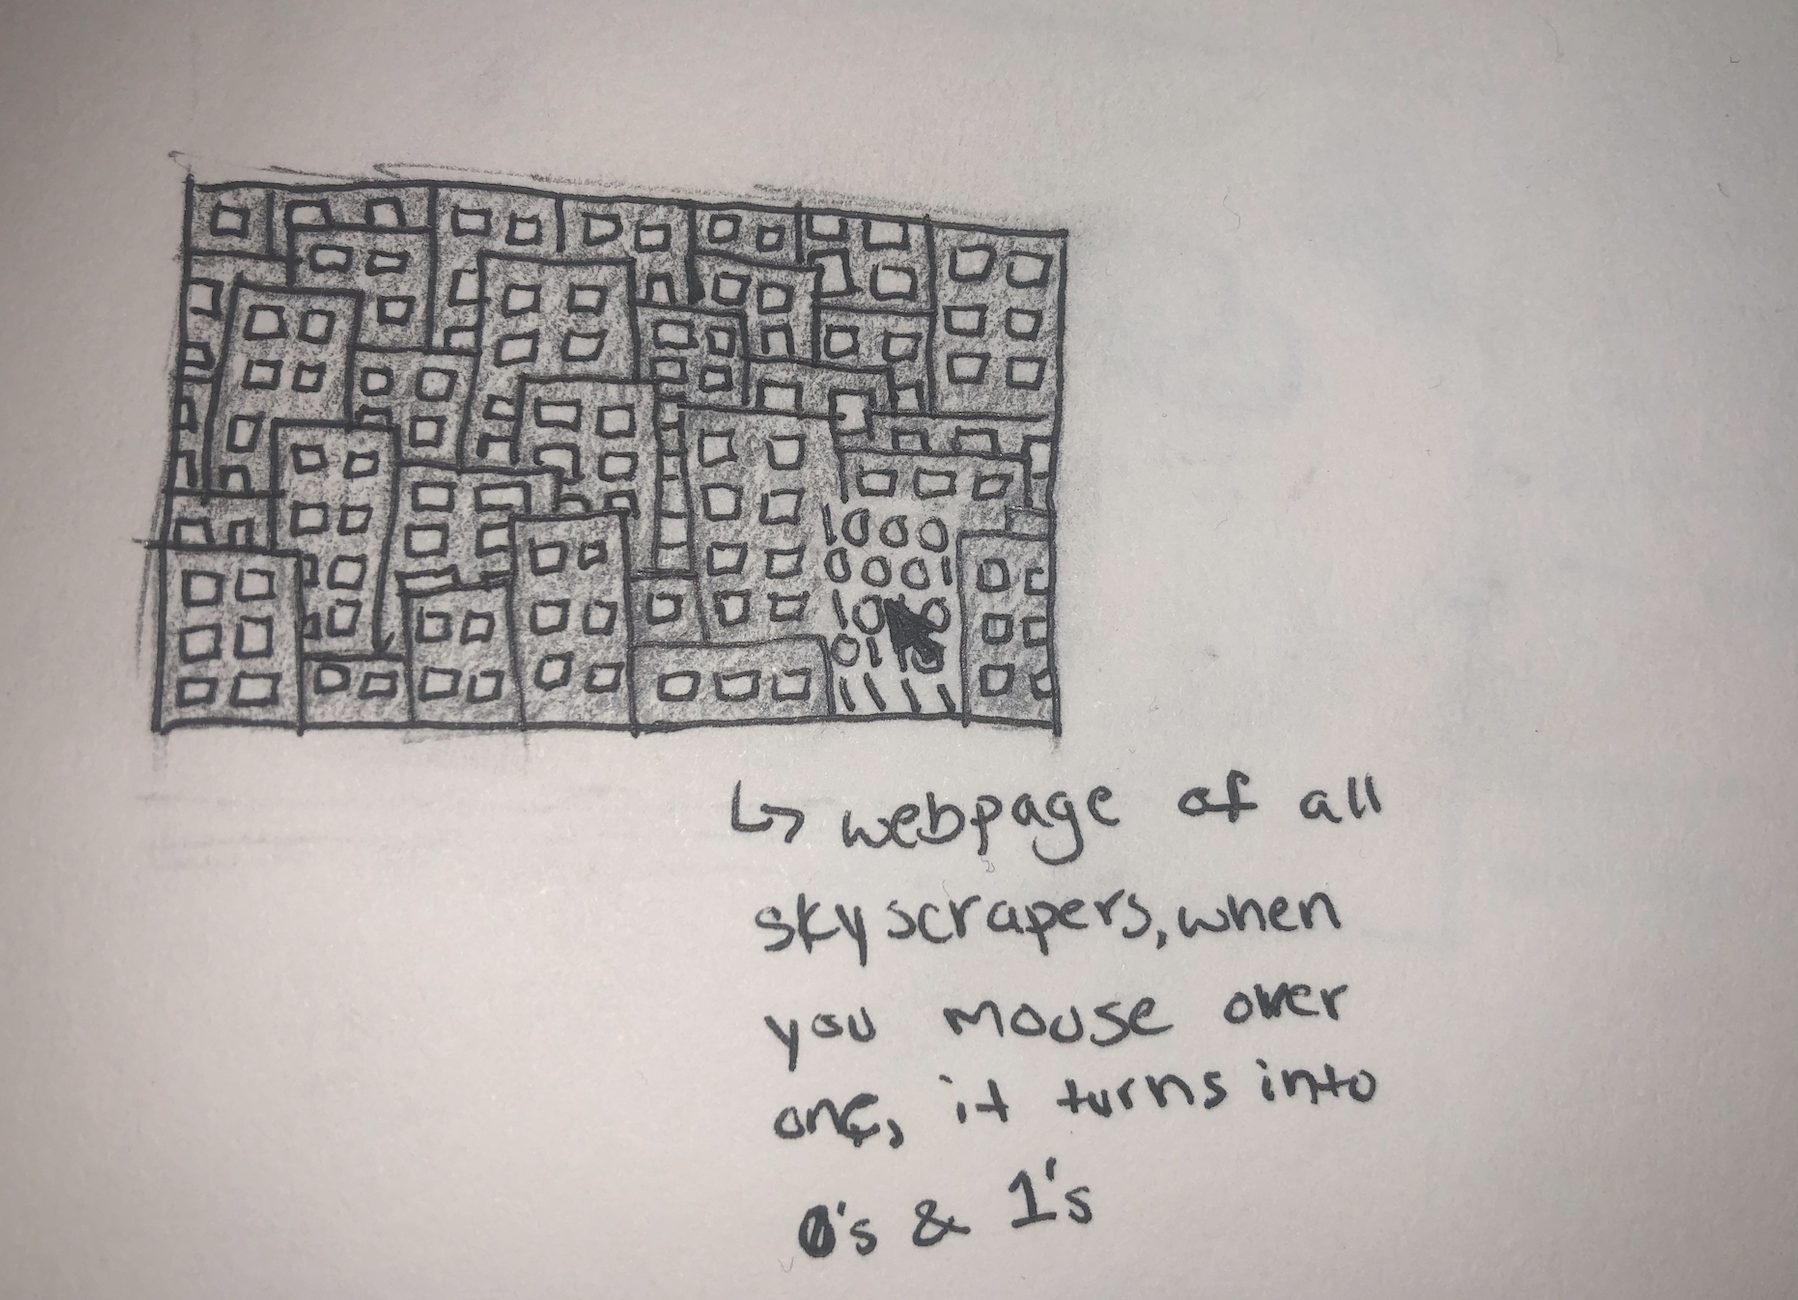 1000
0001
10
01
1111
↳ webpage of all
skyscrapers, when
you mouse over
one, it turns into
0's & 1's